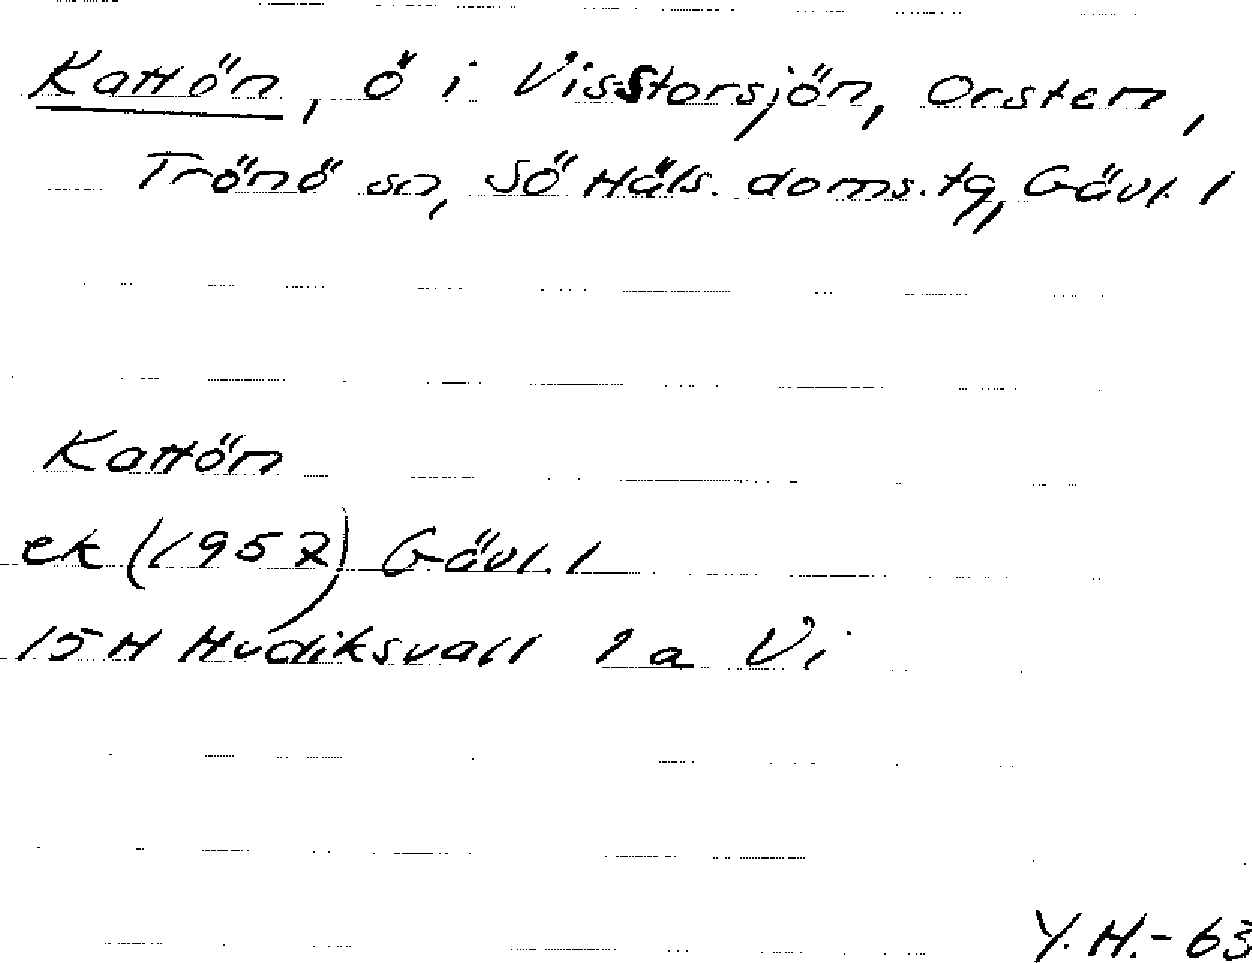 Kattön, ö i Visstorsjön, Orsten,
Trönö sn, Sö Häls. doms.tg, Gävl. l
Kattön
ek (1957) Gävl. l
15H Hudiksvall 1a Vi
Y.H.-63